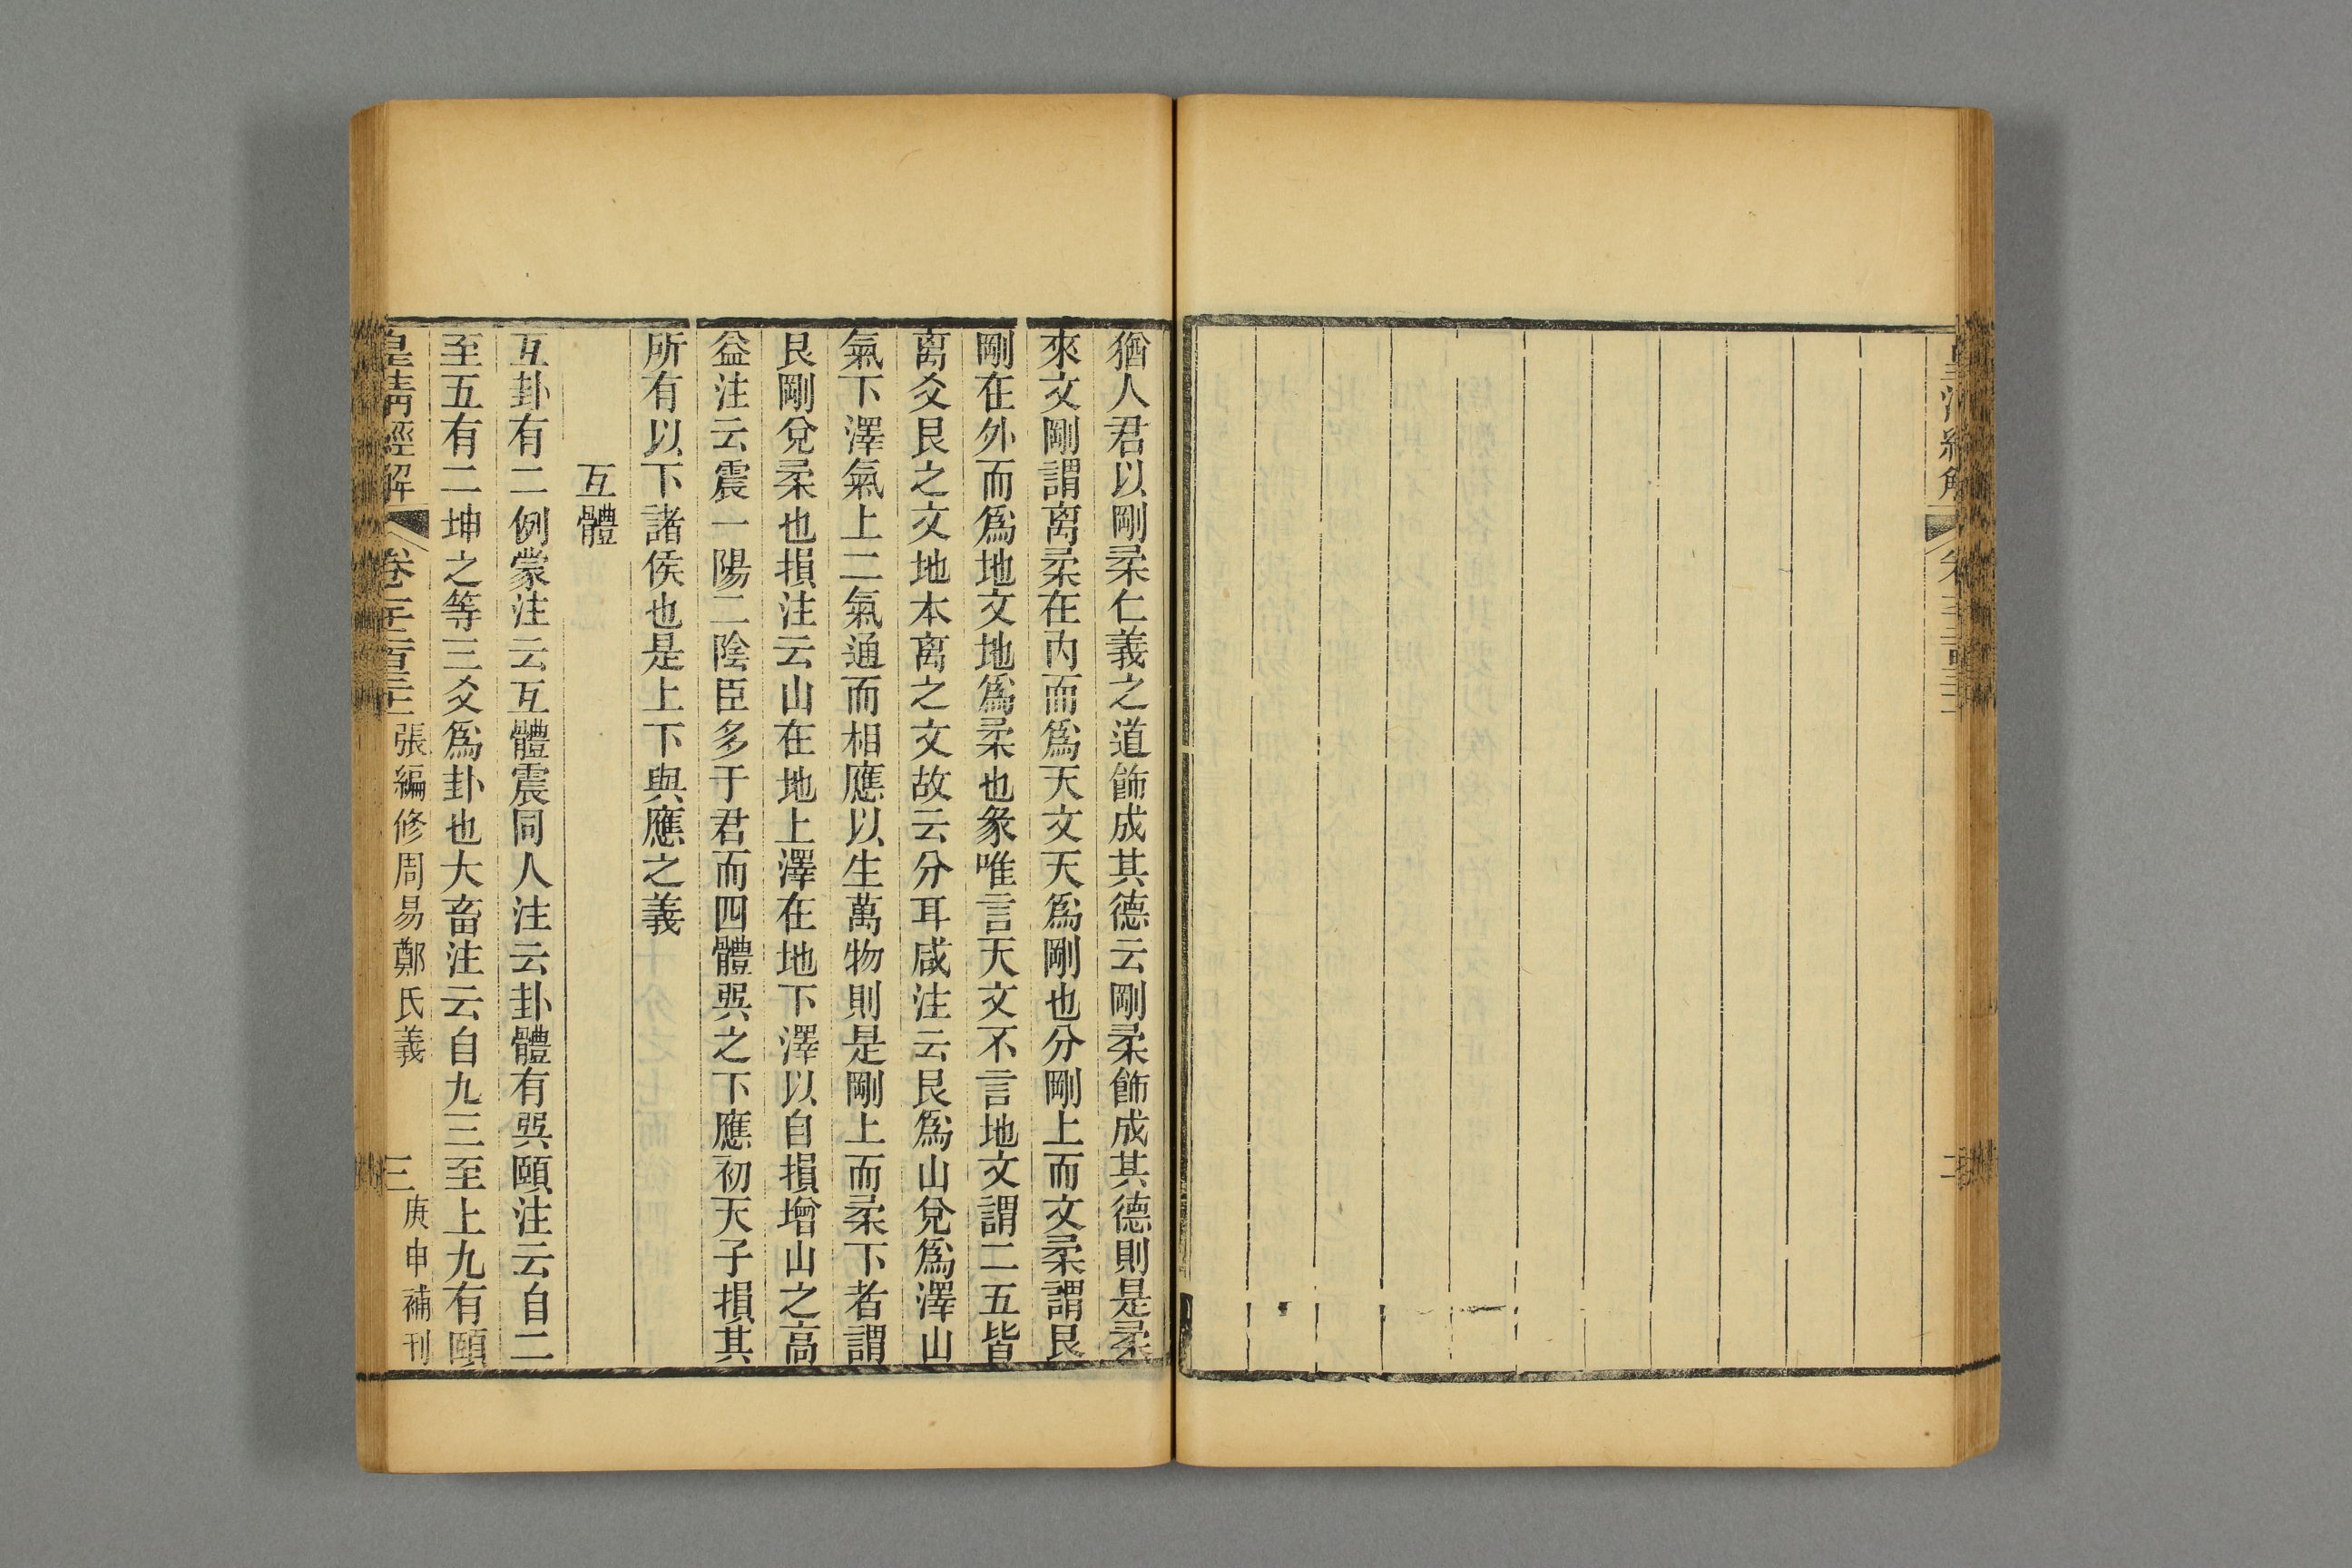 猶人君以剛柔仁義之道飾成其德云剛柔飾成其德則是柔
來文剛謂离柔在内而爲天文天爲剛也分剛上而文柔謂艮
剛在外而爲地文地爲柔也彖唯言天文不言地文謂二五皆
离爻艮之文地本离之文故云分耳咸注云艮爲山兌爲澤山
氣下澤氣上二氣通而相應以生萬物則是剛上而柔下者謂
艮剛兌柔也損注云山在地上澤在地下澤以自損增山之高
益注云震一陽二陰臣多于君而四體巽之下應初天子損其
所有以下諸侯也是上下與應之義
互體
互卦有二例蒙注云互體震同人注云卦體有巽頤注云自二
至五有二坤之等三爻爲卦也大畜注云自九三至上九有頤
皇清經解 卷 張編修周易鄭氏義 三 庚申補刊